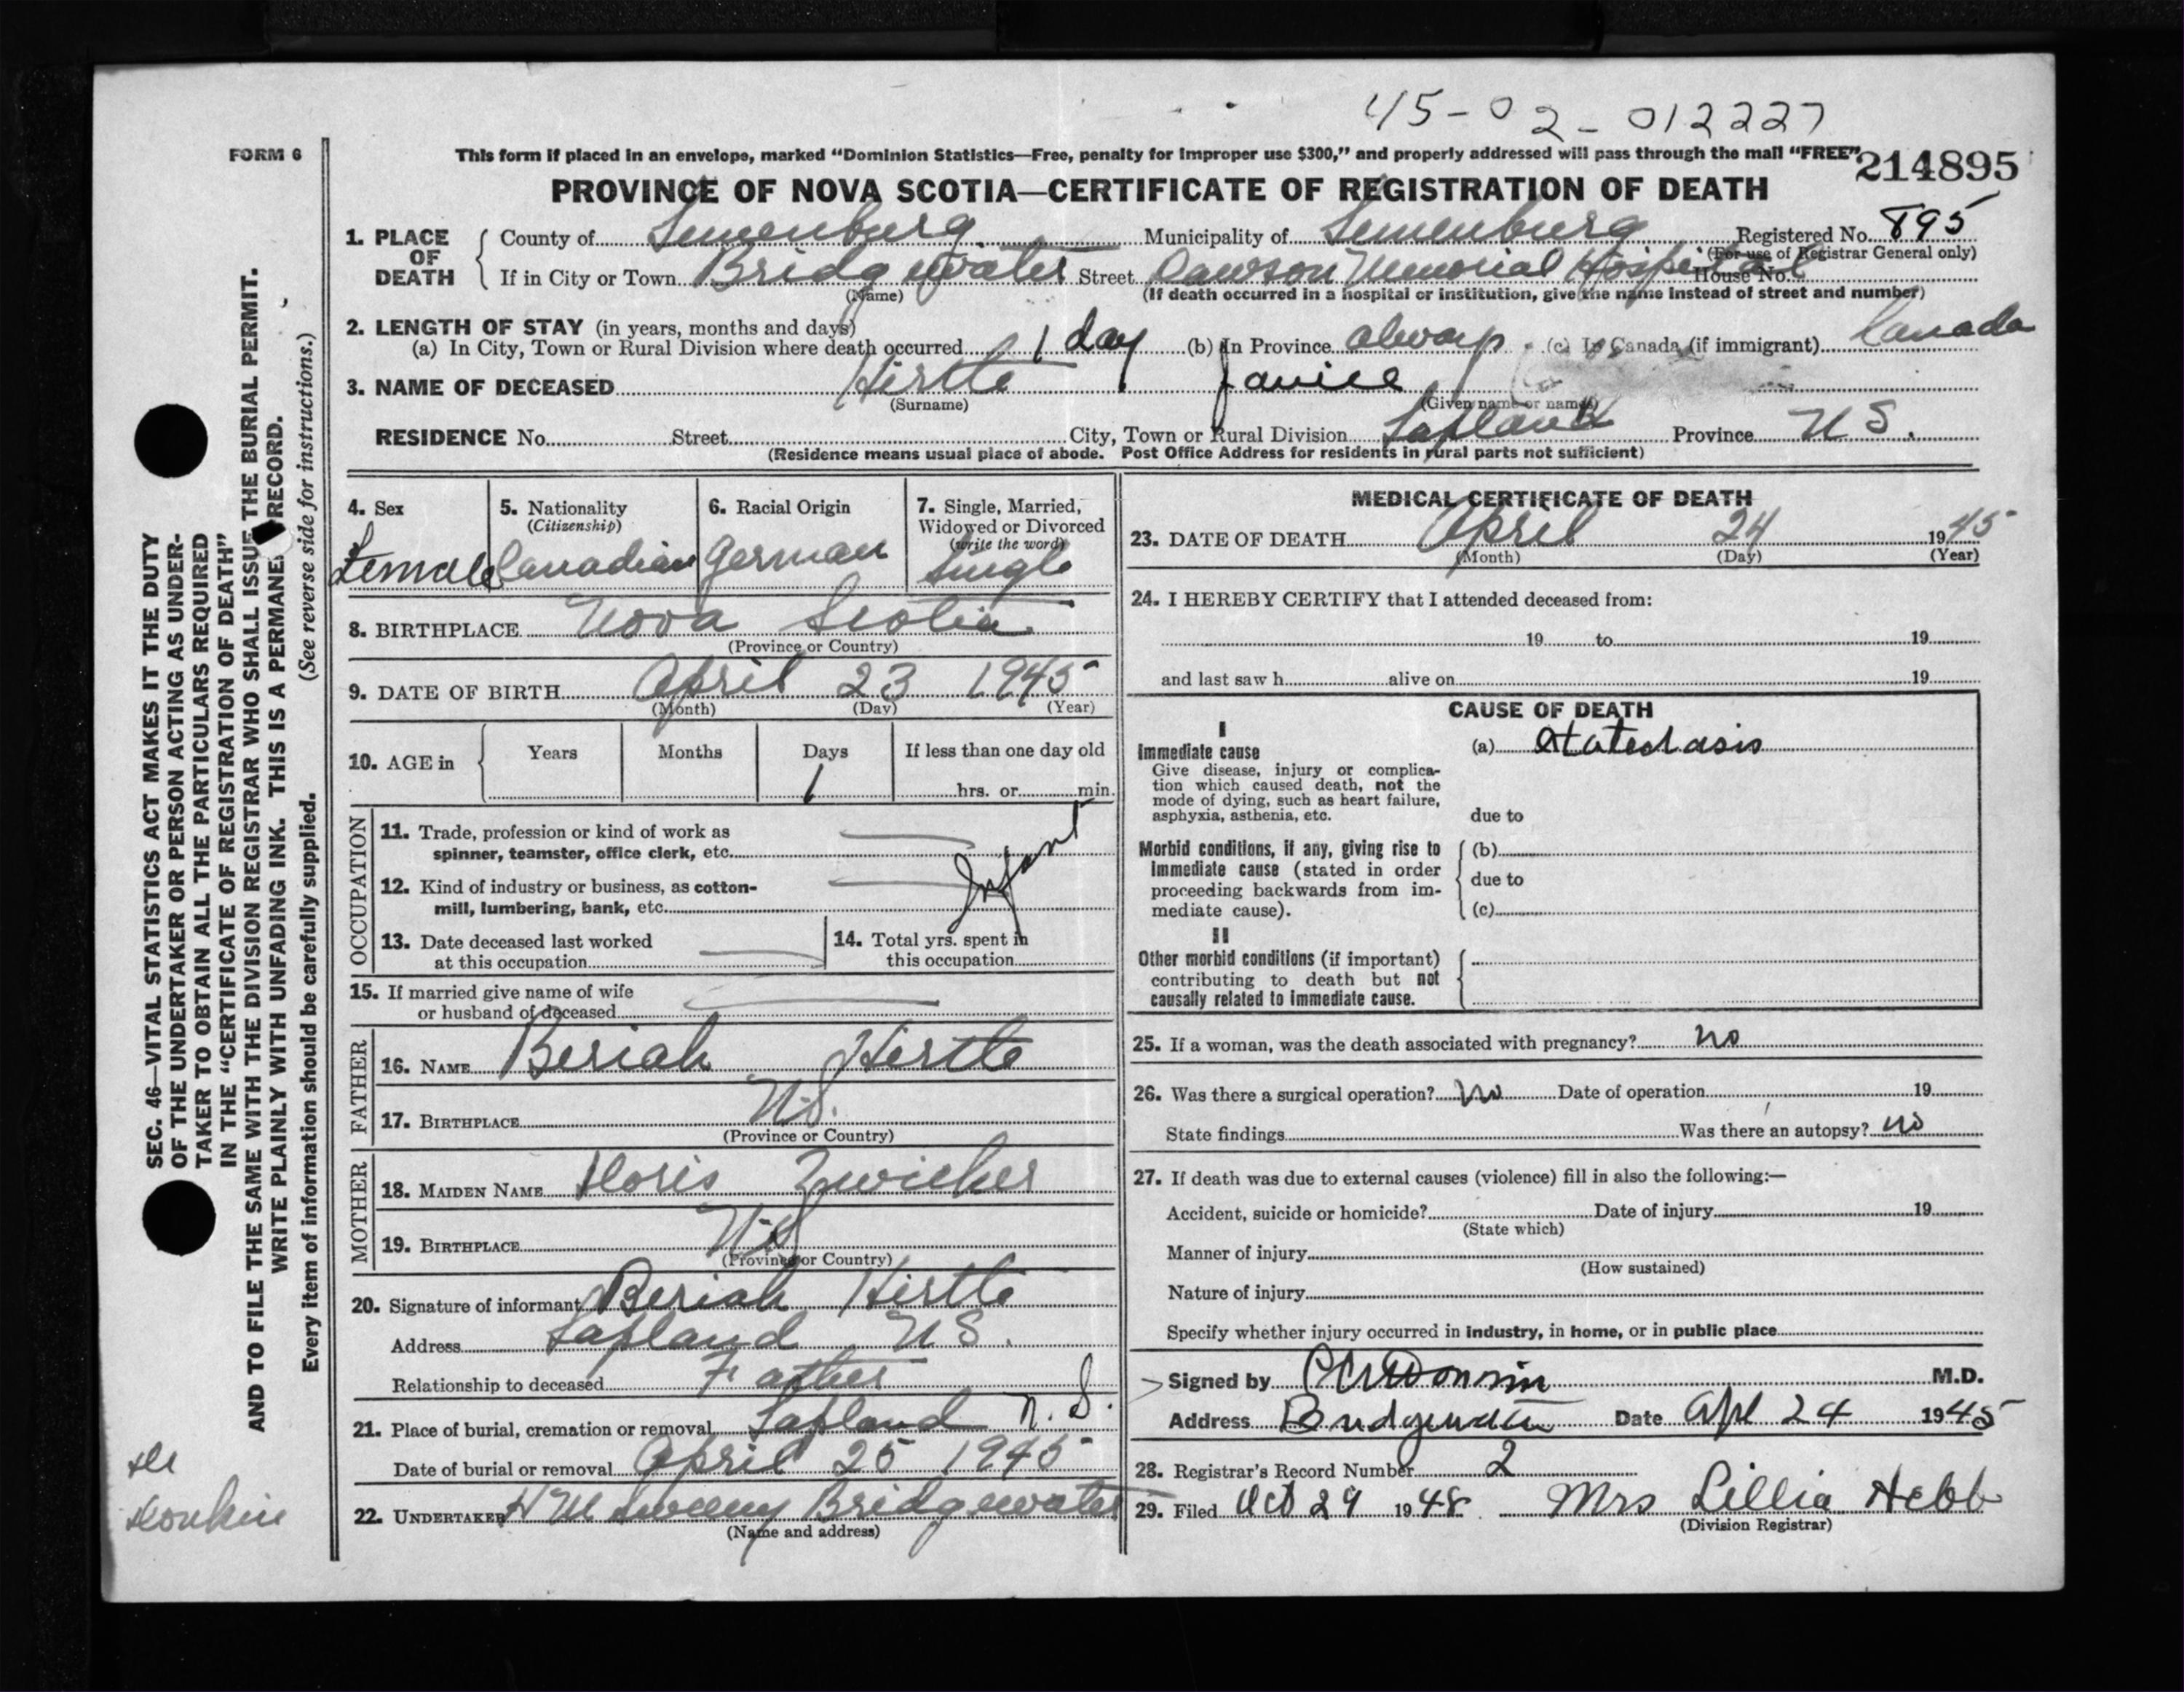 45-02-012227
FORM 6
This form if placed in an envelope, marked “Dominion Statistics—Free, penalty for improper use $300,” and properly addressed will pass through the mail “FREE”
214895
PROVINCE OF NOVA SCOTIA—CERTIFICATE OF REGISTRATION OF DEATH
1. PLACE OF DEATH
County of Lunenburg Municipality of Lunenburg Registered No. 895
(For use of Registrar General only)
If in City or Town Bridgewater Street Dawson Memorial Hospital House No.
(Name) (If death occurred in a hospital or institution, give the name instead of street and number)
2. LENGTH OF STAY (in years, months and days)
(a) In City, Town or Rural Division where death occurred 1 day (b) In Province always (c) In Canada (if immigrant) Canada
3. NAME OF DECEASED Hirtle Janice
(Surname) (Given name or names)
RESIDENCE No. Street City, Town or Rural Division Lapland Province N S.
(Residence means usual place of abode. Post Office Address for residents in rural parts not sufficient)
4. Sex
Female
5. Nationality
(Citizenship)
Canadian
6. Racial Origin
German
7. Single, Married,
Widowed or Divorced
(write the word)
Single
8. BIRTHPLACE Nova Scotia
(Province or Country)
9. DATE OF BIRTH April 23 1945
(Month) (Day) (Year)
10. AGE in Years Months Days If less than one day old
1 hrs. or min.
OCCUPATION
11. Trade, profession or kind of work as
spinner, teamster, office clerk, etc.
Infant
12. Kind of industry or business, as cotton-
mill, lumbering, bank, etc.
13. Date deceased last worked
at this occupation
14. Total yrs. spent in
this occupation
15. If married give name of wife
or husband of deceased
FATHER
16. NAME Beriah Hirtle
17. BIRTHPLACE N.S.
(Province or Country)
MOTHER
18. MAIDEN NAME Doris Zwicker
19. BIRTHPLACE N.S
(Province or Country)
20. Signature of informant Beriah Hirtle
Address Lapland N S.
Relationship to deceased Father
21. Place of burial, cremation or removal Lapland N. S.
Date of burial or removal April 25 1945
22. UNDERTAKER H M Sweeny Bridgewater
(Name and address)
MEDICAL CERTIFICATE OF DEATH
23. DATE OF DEATH April 24 1945
(Month) (Day) (Year)
24. I HEREBY CERTIFY that I attended deceased from:
19 to 19
and last saw h alive on 19
CAUSE OF DEATH
I
Immediate cause (a) Atelectasis
Give disease, injury or complica-
tion which caused death, not the
mode of dying, such as heart failure,
asphyxia, asthenia, etc. due to
Morbid conditions, if any, giving rise to (b)
immediate cause (stated in order due to
proceeding backwards from im-
mediate cause). (c)
II
Other morbid conditions (if important)
contributing to death but not
causally related to immediate cause.
25. If a woman, was the death associated with pregnancy? no
26. Was there a surgical operation? no Date of operation 19
State findings Was there an autopsy? no
27. If death was due to external causes (violence) fill in also the following:—
Accident, suicide or homicide? Date of injury 19
(State which)
Manner of injury
(How sustained)
Nature of injury
Specify whether injury occurred in industry, in home, or in public place
Signed by M.D.
Address Bridgewater Date Apl 24 1945
28. Registrar's Record Number 2
29. Filed Oct 29 1948. Mrs Lillia Hebb
(Division Registrar)
SEC. 46—VITAL STATISTICS ACT MAKES IT THE DUTY
OF THE UNDERTAKER OR PERSON ACTING AS UNDER-
TAKER TO OBTAIN ALL THE PARTICULARS REQUIRED
IN THE “CERTIFICATE OF REGISTRATION OF DEATH”
AND TO FILE THE SAME WITH THE DIVISION REGISTRAR WHO SHALL ISSUE THE BURIAL PERMIT.
WRITE PLAINLY WITH UNFADING INK. THIS IS A PERMANENT RECORD.
Every item of information should be carefully supplied. (See reverse side for instructions.)
Dr
Donkin